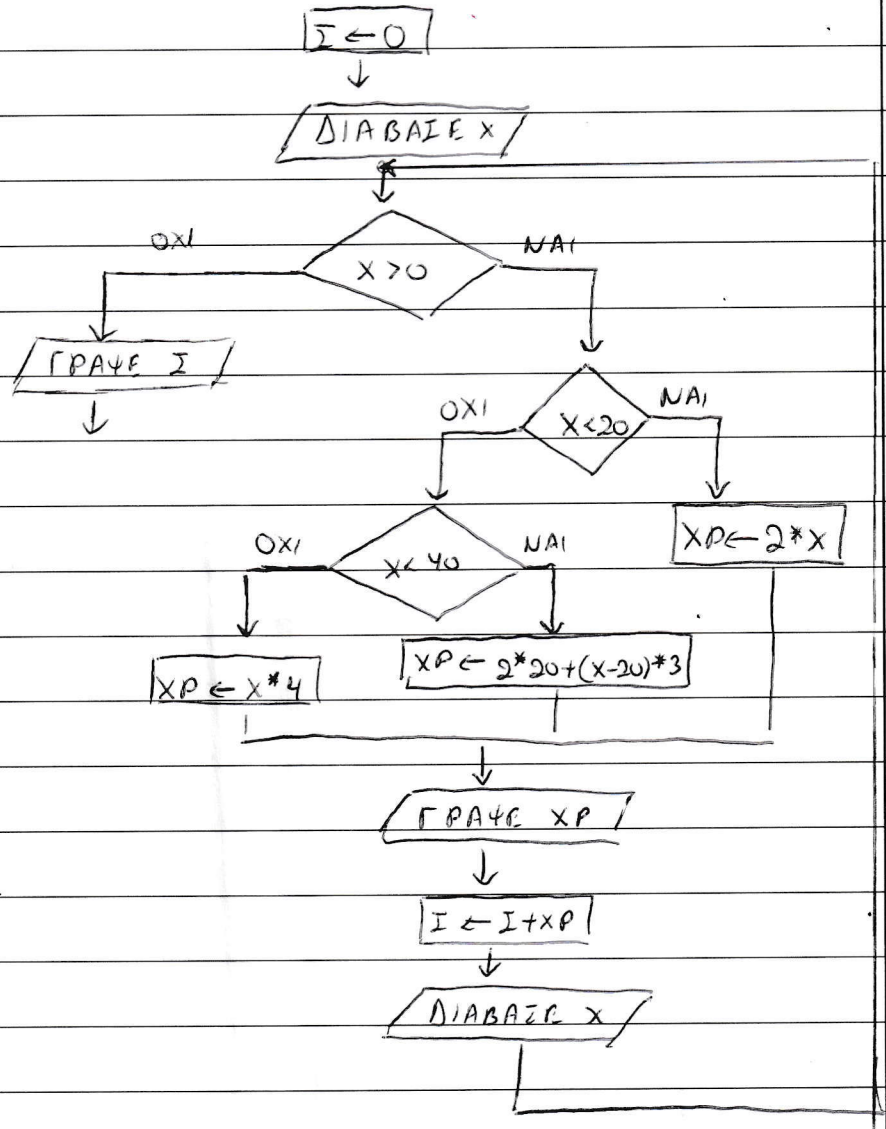 Σ ← 0
ΔΙΑΒΑΣΕ Χ
ΟΧΙ
Χ > 0
ΝΑΙ
ΓΡΑΨΕ Σ
ΟΧΙ
Χ < 20
ΝΑΙ
ΧΡ ← 2 * Χ
ΟΧΙ
Χ < 40
ΝΑΙ
ΧΡ ← Χ * 4
ΧΡ ← 2 * 20 + (Χ - 20) * 3
ΓΡΑΨΕ ΧΡ
Σ ← Σ + ΧΡ
ΔΙΑΒΑΣΕ Χ